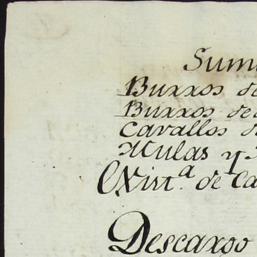 Sum
Burros de
Burros de
Cavallos d
Mulas y
Exist.ª de Ca
Descargo